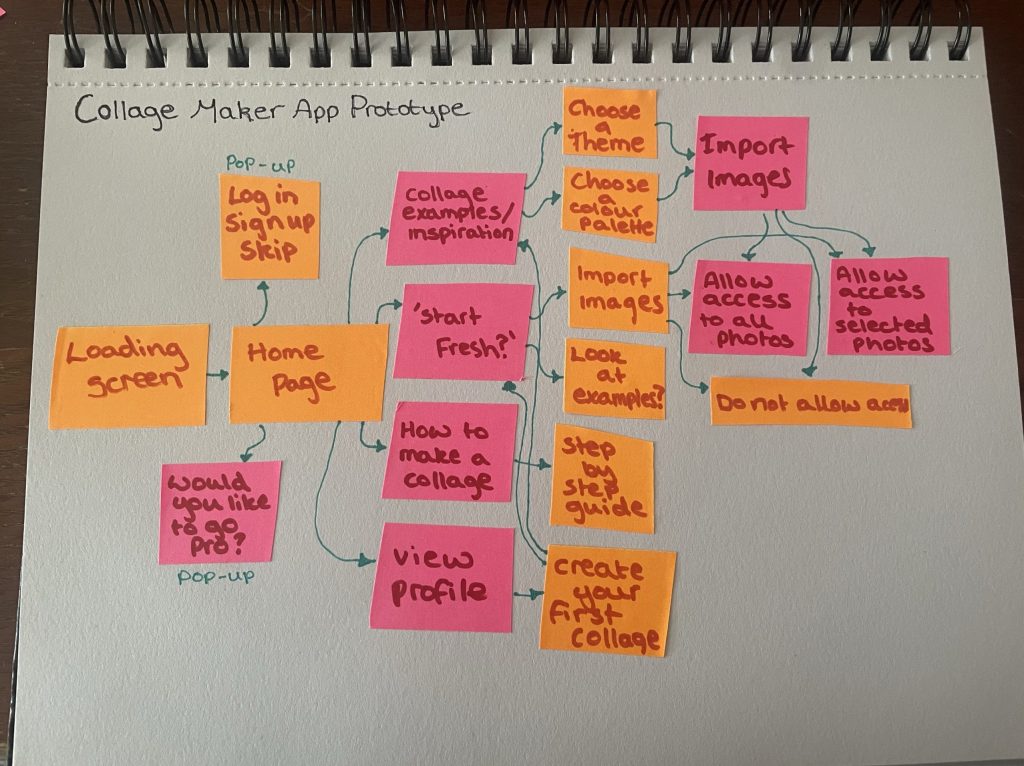 Collage Maker App Prototype
Pop-up
Log in
Sign up
Skip
Loading
Screen
Home
Page
would
you like
to go
pro?
Pop-up
collage
examples/
inspiration
'start
Fresh?'
How to
make a
collage
view
profile
Choose
a
Theme
Choose
a
colour
palette
Import
Images
Look
at
examples?
Step
by
step
guide
create
your
first
collage
Import
Images
Allow
access
to all
photos
Allow
access
to
selected
photos
Do not allow access